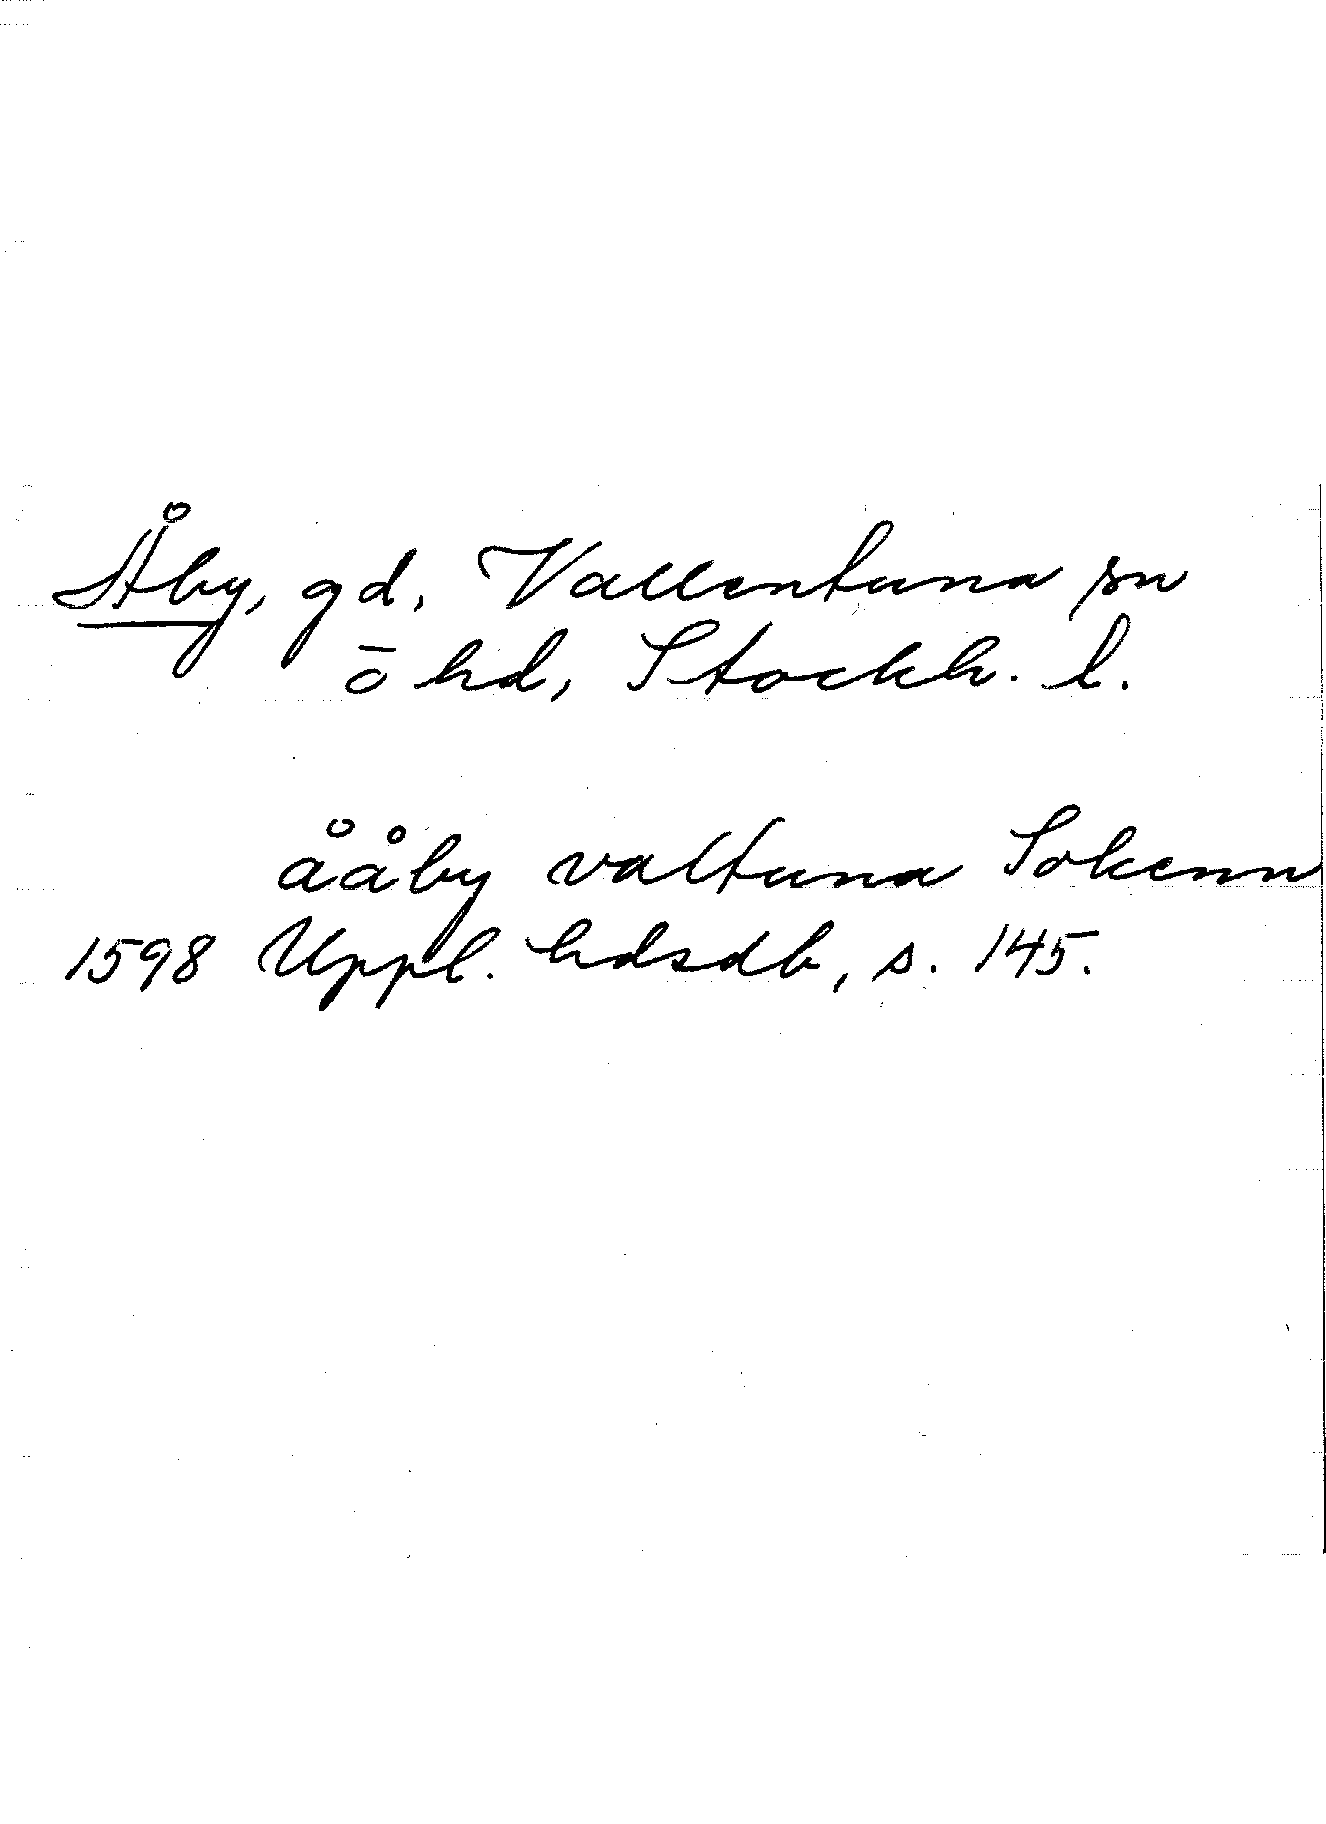 Åby, gd, Vallentuna sn
ö hd, Stockh. l.
ååby valtuna Sokenn
1598 Uppl. hdsdb, s. 145.